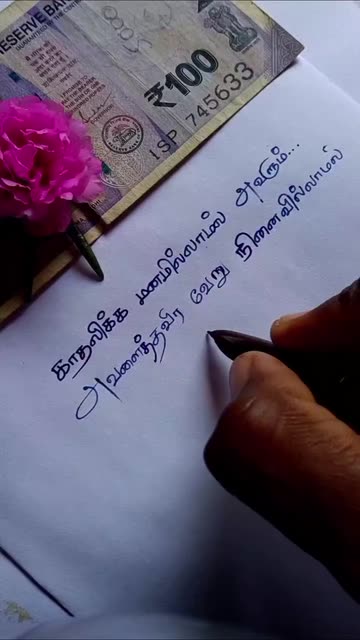 RESERVE BAN
₹100
1SP 745633
காதலிக்க மனமில்லாமல் அவரும்...
அவனைத்தவிர வேறு நினைவில்லாமல்